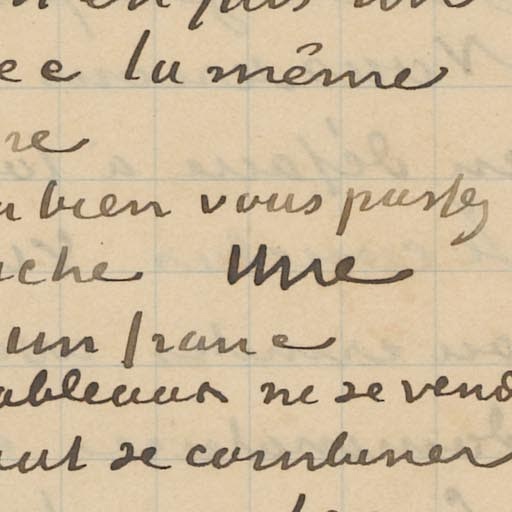 la même
re
bien vous passez
che Une
un franc
ableaux ne se vend
aut se combiner